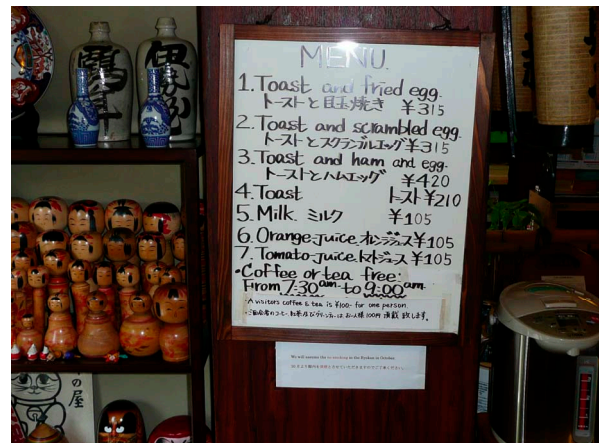 MENU.
1. Toast and fried egg.
トーストと目玉焼き ¥315
2. Toast and scrambled egg.
トーストとスクランブルエッグ ¥315
3. Toast and ham and egg.
トーストとハムエッグ ¥420
4. Toast トースト ¥210
5. Milk ミルク ¥105
6. Orange juice オレンジジュース ¥105
7. Tomato juice トマトジュース ¥105
・Coffee or tea free.
From 7:30am to 9:00am
A visitors coffee & tea is ¥100- for one person.
We will restart the in the Ryokan in October.
の屋